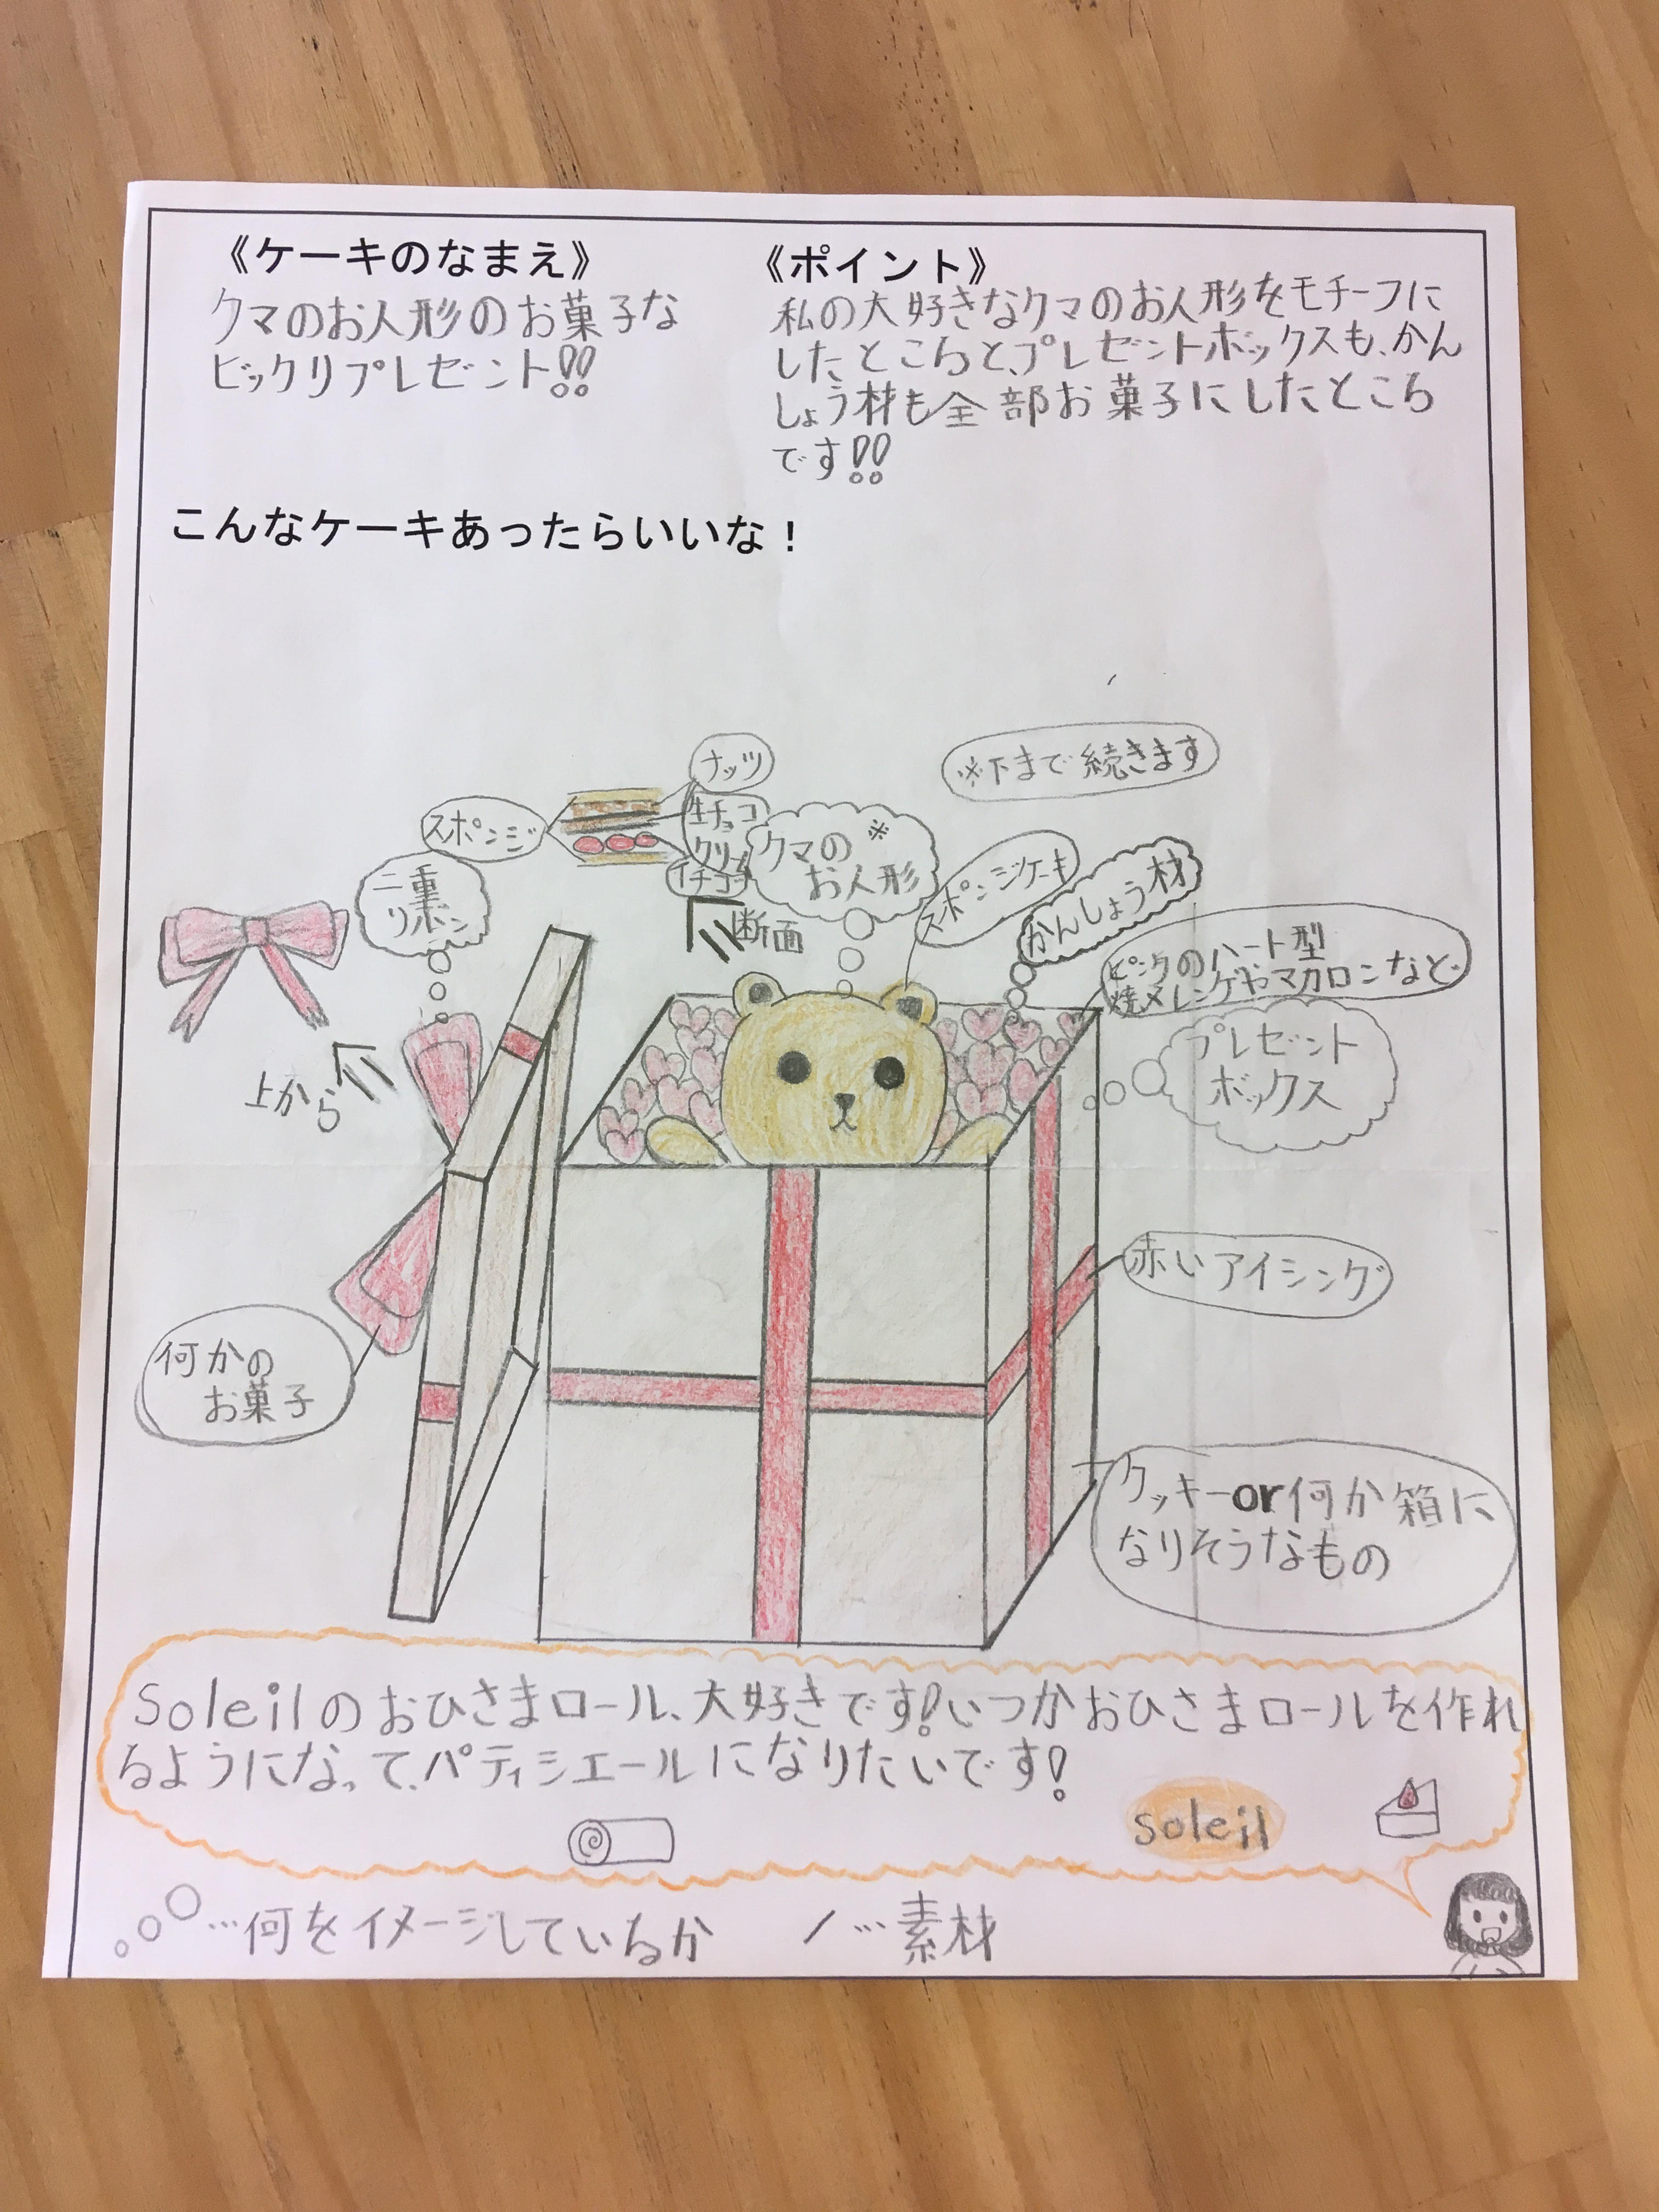 《ケーキのなまえ》
クマのお人形のお菓子な
ビックリプレゼント!!
《ポイント》
私の大好きなクマのお人形をモチーフに
したところと、プレゼントボックスも、かん
しょう材も全部お菓子にしたところ
です!!
こんなケーキあったらいいな！
※下まで続きます
ナッツ
スポンジ
生チョコ
クリーム
イチゴ
クマの※
お人形
断面
スポンジケーキ
かんしょう材
ピンクのハート型
焼メレンゲやマカロンなど
二重
リボン
上から
プレゼント
ボックス
赤いアイシング
何かの
お菓子
クッキーor何か箱に
なりそうなもの
Soleilのおひさまロール、大好きです!いつかおひさまロールを作れ
るようになって、パティシエールになりたいです!
soleil
…何をイメージしているか
／…素材